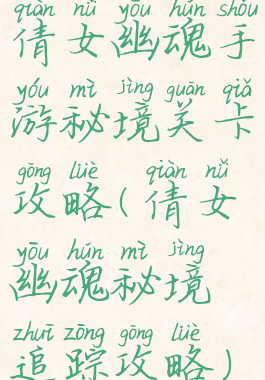 qiàn nǚ yōu hún shǒu
倩女幽魂手
yóu mì jìng guān qiǎ
游秘境关卡
gōng lüè qiàn nǚ
攻略(倩女
yōu hún mì jìng
幽魂秘境
zhuī zōng gōng lüè
追踪攻略)